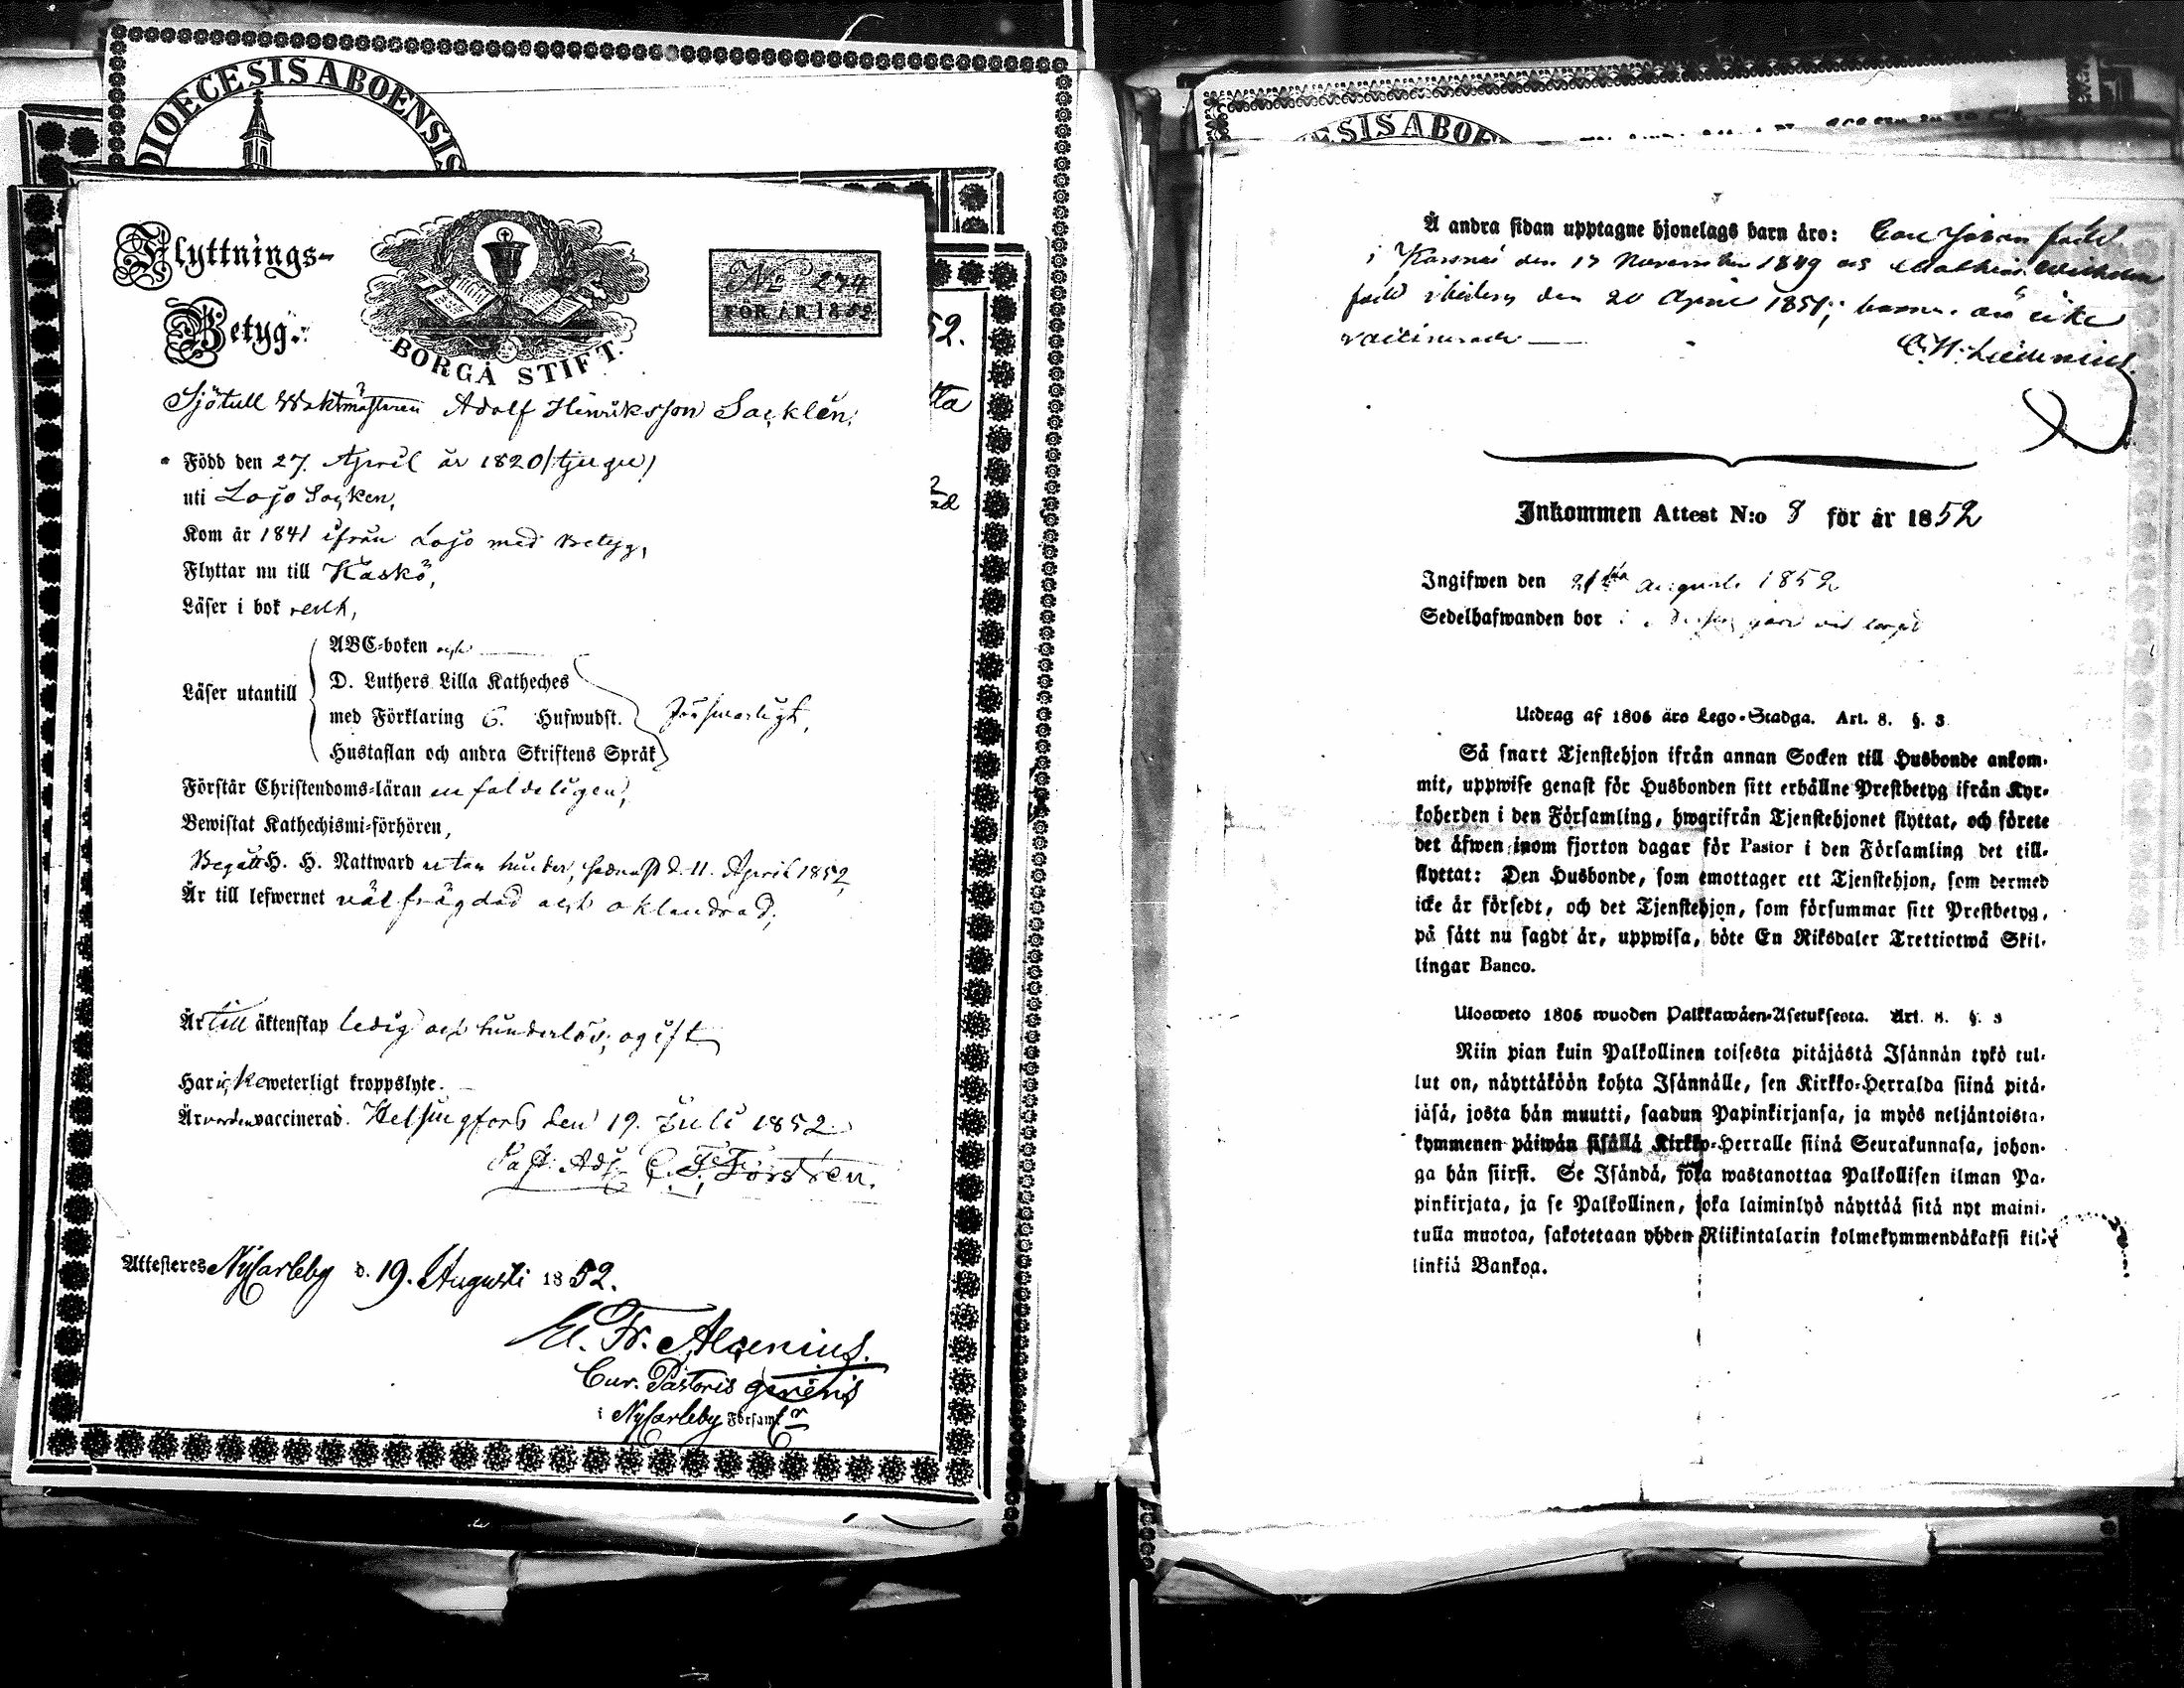 DIOECESIS ABOENSIS
Flyttnings-
Betyg.
BORGÅ STIFT.
No 274
FÖR ÅR 1852.
Sjötull Waktmästaren Adolf Hinriksson Sacklén,
Född den 27. April år 1820 (tjugu)
uti Lojo Socken,
Kom år 1841 ifrån Lojo med Betyg,
Flyttar nu till Kaskö,
Läser i bok
ABC-boken och
Läser utantill
D. Luthers Lilla Katheches
med Förklaring 6. Hufwudst.
Försvarligt,
Hustaflan och andra Skriftens Språk
Förstår Christendoms-läran enfaldeligen,
Bewistat Kathechismi-förhören,
Begått H. H. Nattward utan hinder, sednast d. 11. April 1852,
Är till lefwernet välfrägdad och oklandrad,
Är till äktenskap ledig och hinderlös, ogift
Har icke weterligt kroppslyte.
Är worden vaccinerad. Helsingfors den 19. Juli 1852.
Past. Adj. Forstén.
Attesteres Nycarleby d. 19. Augusti 1852.
Fr. Alcenius.
Cur. Pastoris gerens
i Nycarleby Församl:r
52.
tta
ESIS ABOE
Å andra sidan upptagne hjonelags barn äro: Carl Johan född
i den 17 November 1849 och Mathias Wilhelm
född den 20 April 1851; äro icke
vaccinerade
Inkommen Attest N:o 8 för år 1852
Ingifwen den 21sta Augusti 1852
Sedelhafwanden bor
Utdrag af 1805 års Lego-Stadga. Art. 8. §. 3
Så snart Tjenstehjon ifrån annan Socken till Husbonde ankom-
mit, uppwise genast för Husbonden sitt erhållne Prestbetyg ifrån Kyr-
koherden i den Församling, hwarifrån Tjenstehjonet flyttat, och förete
det äfwen inom fjorton dagar för Pastor i den Församling det till-
flyttat: Den Husbonde, som emottager ett Tjenstehjon, som dermed
icke är försedt, och det Tjenstehjon, som försummar sitt Prestbetyg,
på sätt nu sagdt är, uppwisa, böte En Riksdaler Trettiotwå Skil-
lingar Banco.
Ulosweto 1805 wuoden Palkkawäen-Asetuksesta. Art. 8. §. 3
Niin pian kuin Palkollinen toisesta pitäjästä Isännän tykö tul-
lut on, näyttäköön kohta Isännälle, sen Kirkko-Herralda siinä pitä-
jäsä, josta hän muutti, saadun Papinkirjansa, ja myös neljäntoista-
kymmenen päiwän sisällä Kirkko-Herralle siinä Seurakunnasa, johon-
ga hän siirst. Se Isändä, joka wastanottaa Palkollisen ilman Pa-
pinkirjata, ja se Palkollinen, joka laiminlyö näyttää sitä nyt maini-
tulla muotoa, sakotetaan yhden Riikintalarin kolmekymmendäkaksi kil-
linkiä Bankoa.